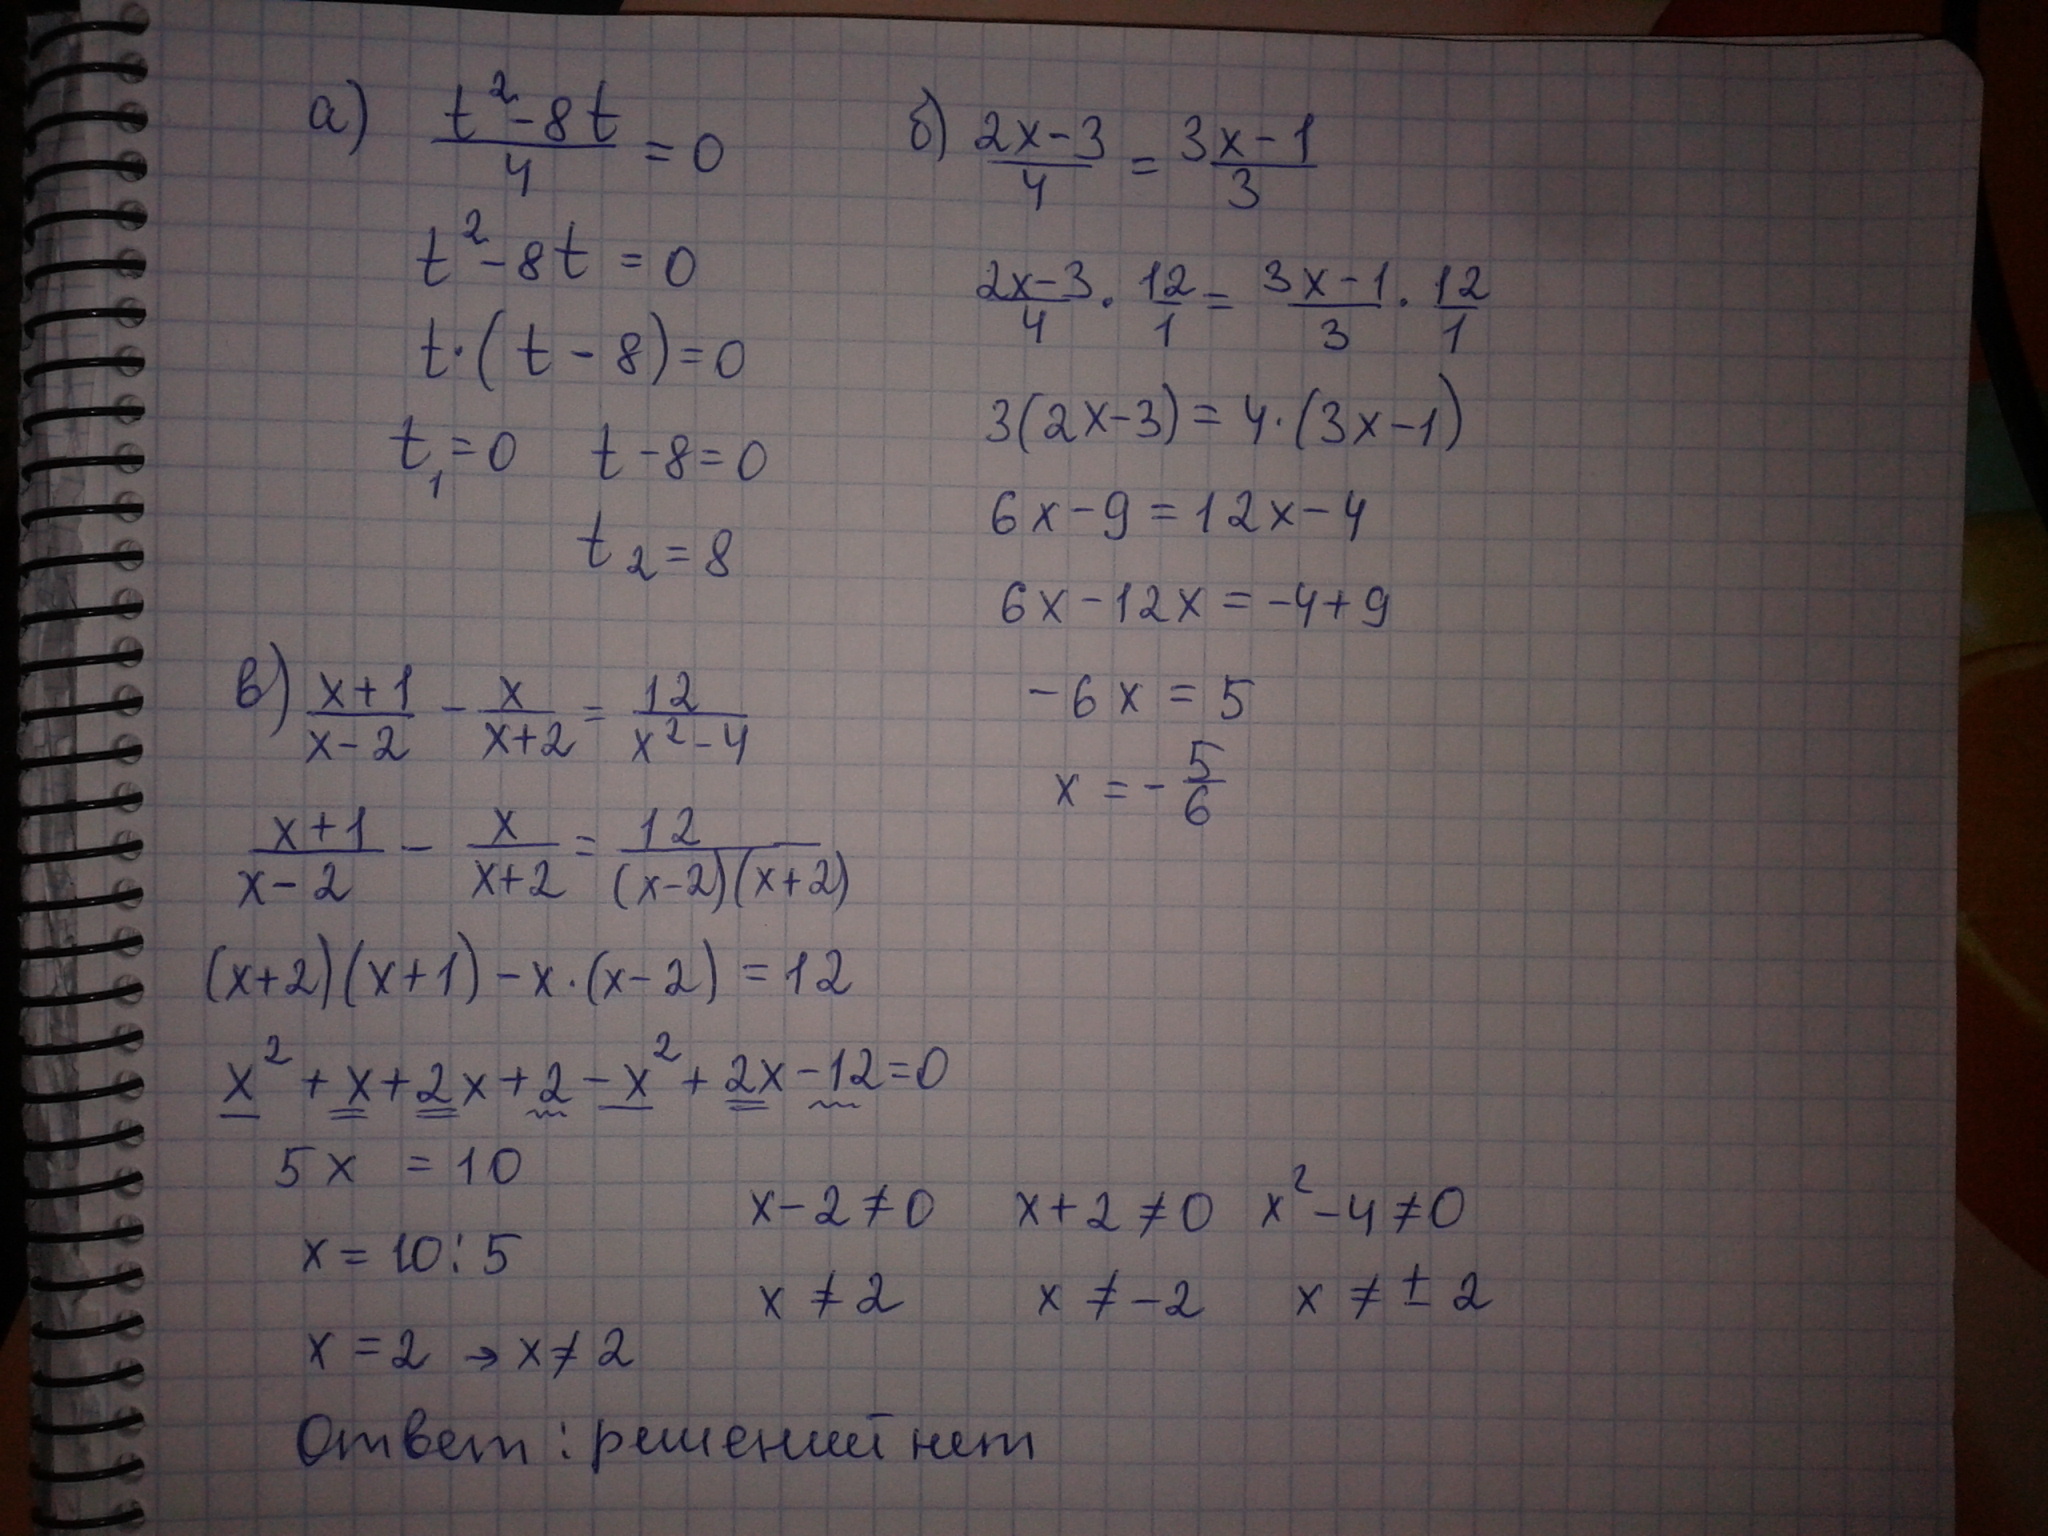 а) (t² - 8t)/4 = 0
t² - 8t = 0
t · (t - 8) = 0
t₁ = 0   t - 8 = 0
t₂ = 8
б) (2x - 3)/4 = (3x - 1)/3
(2x - 3)/4 · 12/1 = (3x - 1)/3 · 12/1
3(2x - 3) = 4 · (3x - 1)
6x - 9 = 12x - 4
6x - 12x = -4 + 9
-6x = 5
x = -5/6
в) (x + 1)/(x - 2) - x/(x + 2) = 12/(x² - 4)
(x + 1)/(x - 2) - x/(x + 2) = 12/((x - 2)(x + 2))
(x + 2)(x + 1) - x · (x - 2) = 12
x² + x + 2x + 2 - x² + 2x - 12 = 0
5x = 10
x = 10 : 5
x = 2 → x ≠ 2
x - 2 ≠ 0   x + 2 ≠ 0   x² - 4 ≠ 0
x ≠ 2   x ≠ -2   x ≠ ± 2
Ответ : решений нет